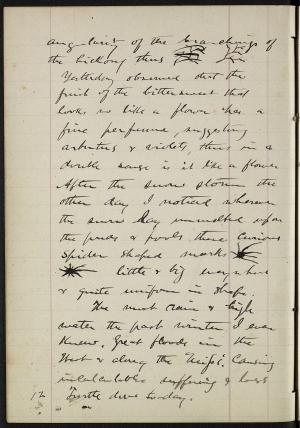 angularity of the branchings of
the hickory thus
Yesterday observed that the
fruit of the bittersweet that
looks so like a flower has a
fine perfume, suggesting
arbutus & violets, thus in a
double sense is it like a flower
After the snow storm the
other day I noticed wherever
the snow lay unmelted upon
the ponds & pools these curious
Spider shaped marks
little & big everywhere
& quite uniform in shape.
The most rain & high
water the past winter I ever
knew. Great floods in the
West & along the Missi. causing
incalculable suffering & loss
Turtle dove to-day.
12